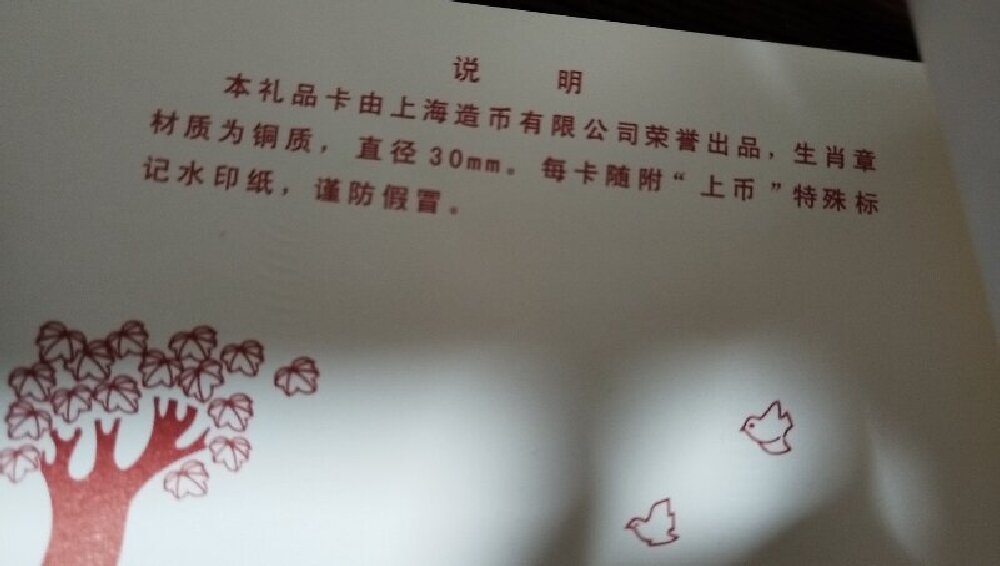 说 明
本礼品卡由上海造币有限公司荣誉出品，生肖章
材质为铜质，直径30mm。每卡随附“上币”特殊标
记水印纸，谨防假冒。